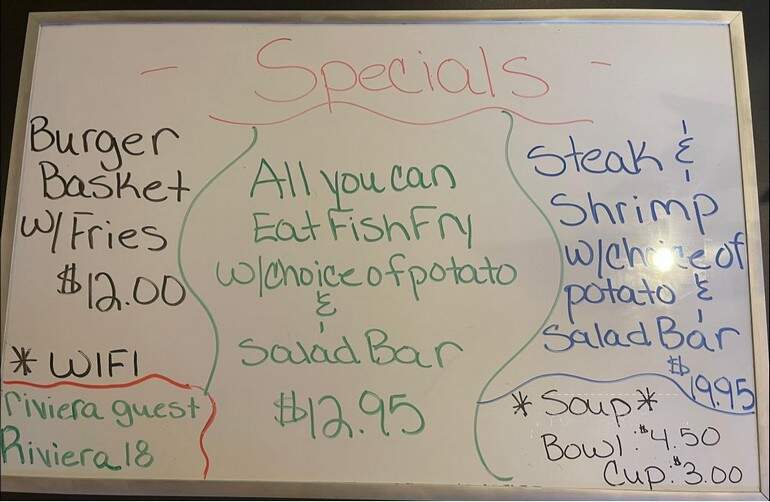 - Specials -
Burger
Basket
w/Fries
$12.00
* WIFI
riviera guest
Riviera18
All you can
Eat Fish Fry
w/choice of potato
&
Salad Bar
$12.95
Steak &
Shrimp
w/Choice of
potato &
Salad Bar
$19.95
* Soup *
Bowl: $4.50
Cup: $3.00